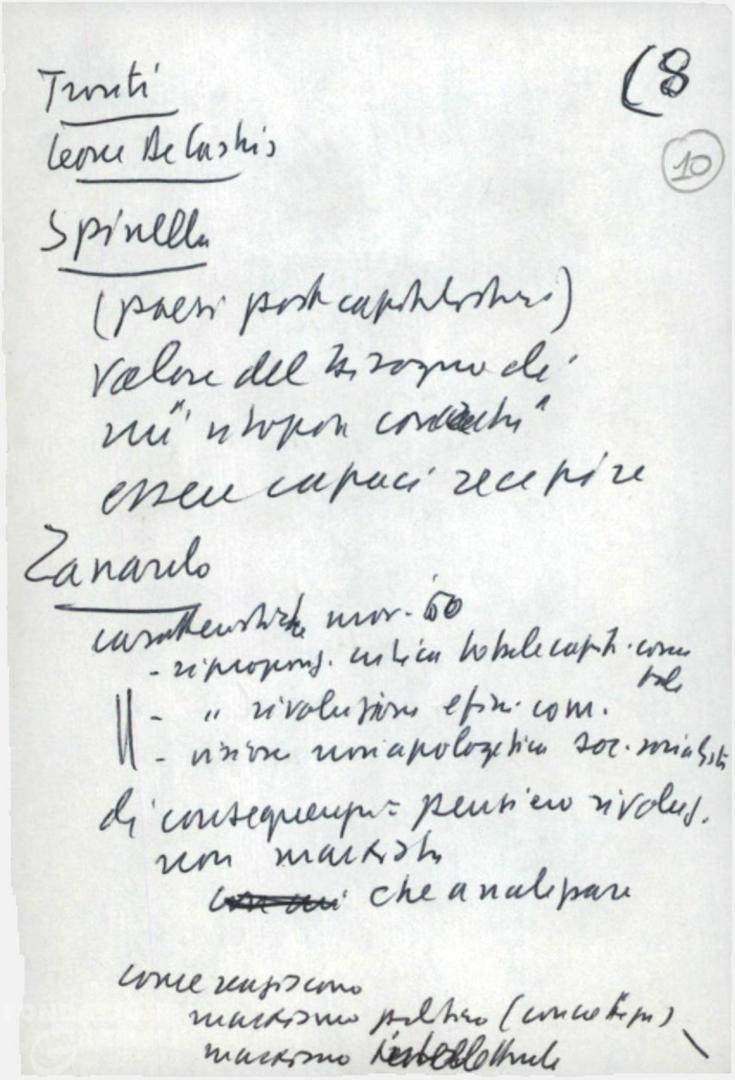 Tronti
(8
10
Leone De Castris
Spinella
(paesi postcapitalistici)
Valore del bisogno di
un "utopia concreta"
essere capaci recepire
Zanardo
caratteristiche mov. '60
- ripropong. critica totale capit. come
tale
- " rivoluzione e fini com.
- visione non apologetica soc. socialisti
di conseguenza = pensiero rivoluz.
non marxista
che analizzare
come reagiscono
marxismo politico (
marxismo intellettuale